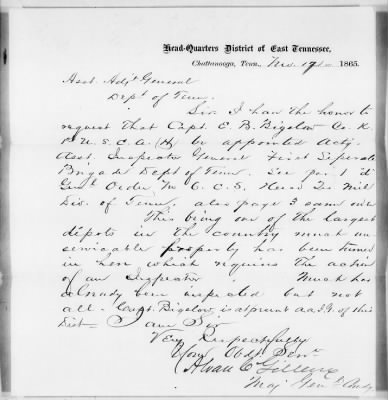 Head-Quarters District of East Tennessee,
Chattanooga, Tenn., Nov. 17th 1865.
Asst. Adjt. General
Dept of Tenn.
Sir I have the honor to
request that Capt. E. B. Bigelow Co. K.
1st U. S. C. A. (H) be appointed Actg.
Asst. Inspector General First Seperate
Brigade Dept of Tenn. See par 1 
Genl Order No C. C. S. Head Qrs Mil
Div. of Tenn, also page 3 same order
This being one of the largest
depots in the country much un-
servicable property has been turned
in here which requires the action
of an Inspector. Much has
already been inspected but not
all. Capt. Bigelow is at present a a I. G. of this
Dist. I am Sir
Very Respectfully
Your Obdt Servt
Alvan C Gillem
Maj Genl Comdg